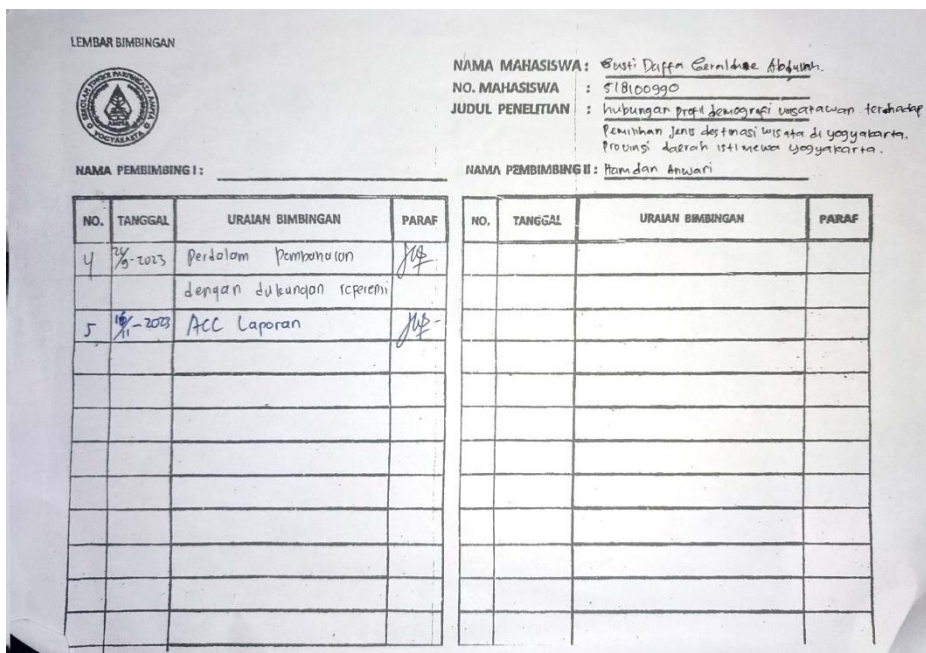 LEMBAR BIMBINGAN
SEKOLAH TINGGI PARIWISATA AMPTA
YOGYAKARTA
NAMA MAHASISWA : Gusti Daffa Geraldine Abdullah.
NO. MAHASISWA : 518100990
JUDUL PENELITIAN : hubungan profil demografi wisatawan terhadap
Pemilihan Jenis destinasi wisata di yogyakarta.
Provinsi daerah istimewa yogyakarta.
NAMA PEMBIMBING I :
NAMA PEMBIMBING II : Hamdan Anwari
NO. TANGGAL URAIAN BIMBINGAN PARAF
4 -2023 Perdalam Pembahasan
dengan dukungan referensi
5 -2023 ACC Laporan
NO. TANGGAL URAIAN BIMBINGAN PARAF